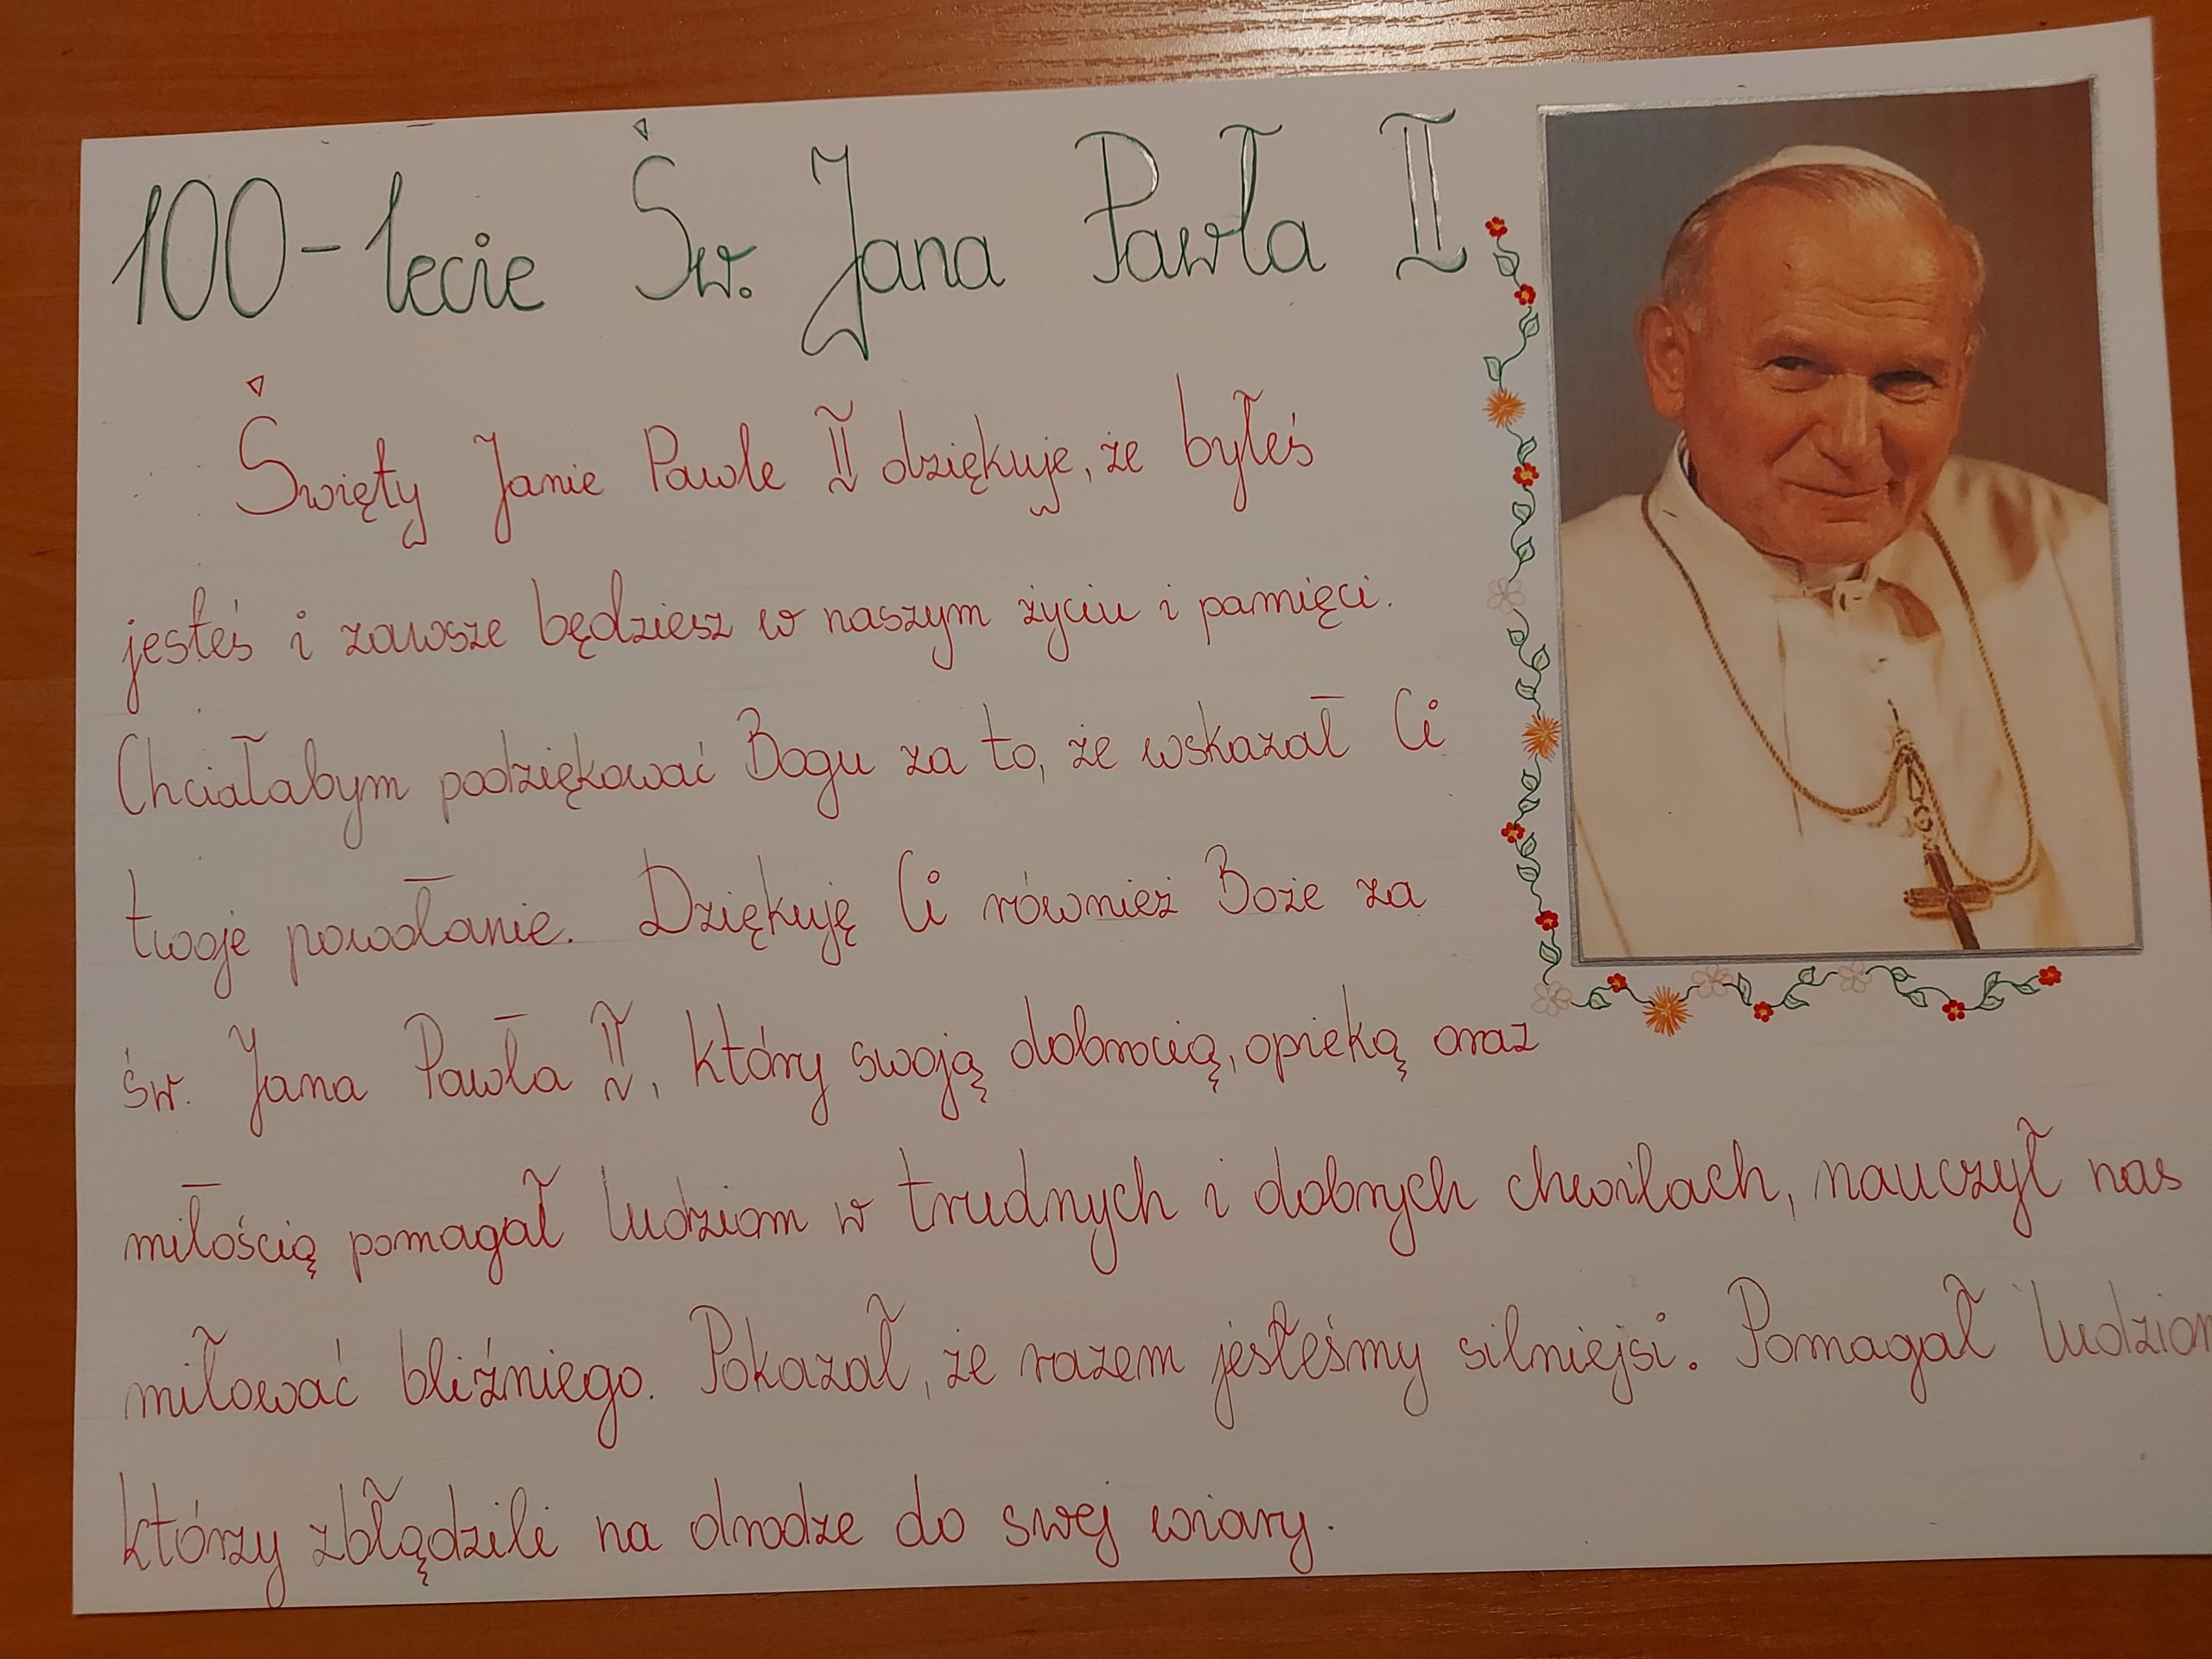 100-lecie Św. Jana Pawła II
Święty Janie Pawle II dziękuje, że byłeś
jesteś i zawsze będziesz w naszym życiu i pamięci.
Chciałabym podziękować Bogu za to, że wskazał Ci
twoje powołanie. Dziękuję Ci również Boże za
św. Jana Pawła II, który swoją dobrocią, opieką oraz
miłością pomagał ludziom w trudnych i dobrych chwilach, nauczył nas
miłować bliźniego. Pokazał, że razem jesteśmy silniejsi. Pomagał ludziom
którzy zbłądzili na drodze do swej wiary.